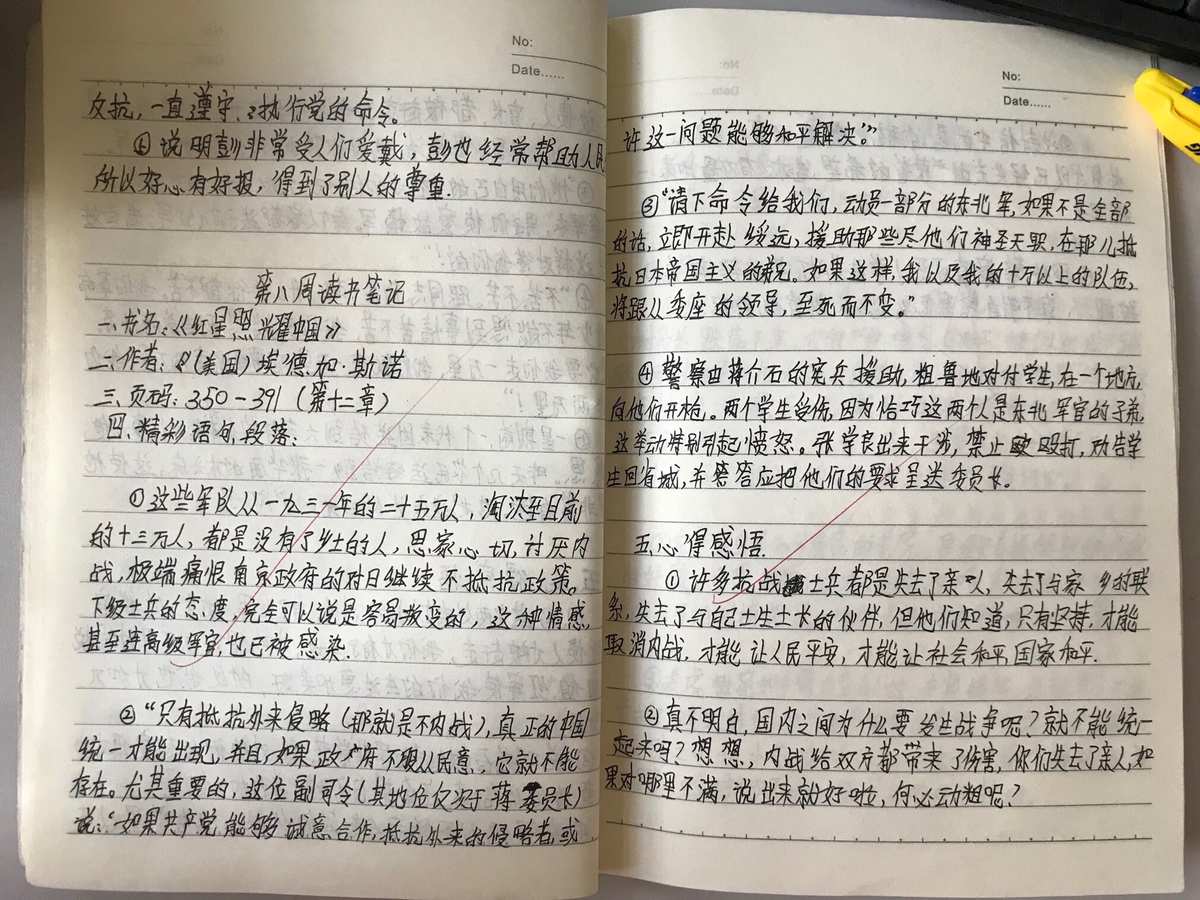 No:
Date......
反抗，一直遵守、执行党的命令。
④说明彭非常受人们爱戴，彭也经常帮助人民
所以好心有好报，得到了别人的尊重.
第八周读书笔记
一.书名：《红星照耀中国》
二.作者：(美国)埃德加·斯诺
三.页码：350-391（第十二章）
四.精彩语句，段落：
①这些军队从一九三一年的二十五万人，淘汰至目前
的十三万人，都是没有了乡土的人，思家心切，讨厌内
战，极端痛恨南京政府的对日继续不抵抗政策。
下级士兵的态度，完全可以说是容易叛变的，这种情感，
甚至连高级军官，也已被感染.
②“只有抵抗外来侵略（那就是不内战），真正的中国
统一才能出现，并且，如果政府不顺从民意，它就不能
存在。尤其重要的，这位副司令（其地位仅次于蒋委员长）
说：“如果共产党能够诚意合作，抵抗外来的侵略者，或
No:
Date......
许这一问题能够和平解决。”
③“请下命令给我们，动员一部分的东北军，如果不是全部
的话，立即开赴绥远，援助那些尽他们神圣天职，在那儿抵
抗日本帝国主义的。如果这样，我以及我的十万以上的队伍，
将跟从委座的领导，至死而不变。”
④警察由蒋介石的宪兵援助，粗鲁地对付学生，在一个地方，
向他们开枪。两个学生受伤，因为恰巧这两个人是东北军官的子弟，
这举动特别引起愤怒。张学良出来干涉，禁止殴打，劝告学
生回省城，并答应把他们的要求呈送委员长。
五.心得感悟.
①许多抗战士兵都是失去了亲人，失去了与家乡的联
系，失去了与自己土生土长的伙伴，但他们知道，只有坚持，才能
取消内战，才能让人民平安，才能让社会和平，国家和平.
②真不明白，国内之间为什么要发生战争呢？就不能统一
起来吗？想想，内战给双方都带来了伤害，你们失去了亲人，如
果对哪里不满，说出来就好啦，何必动粗呢？